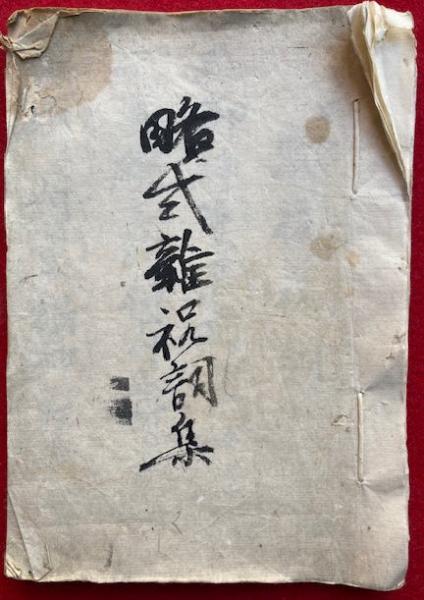 略式雜祝詞集